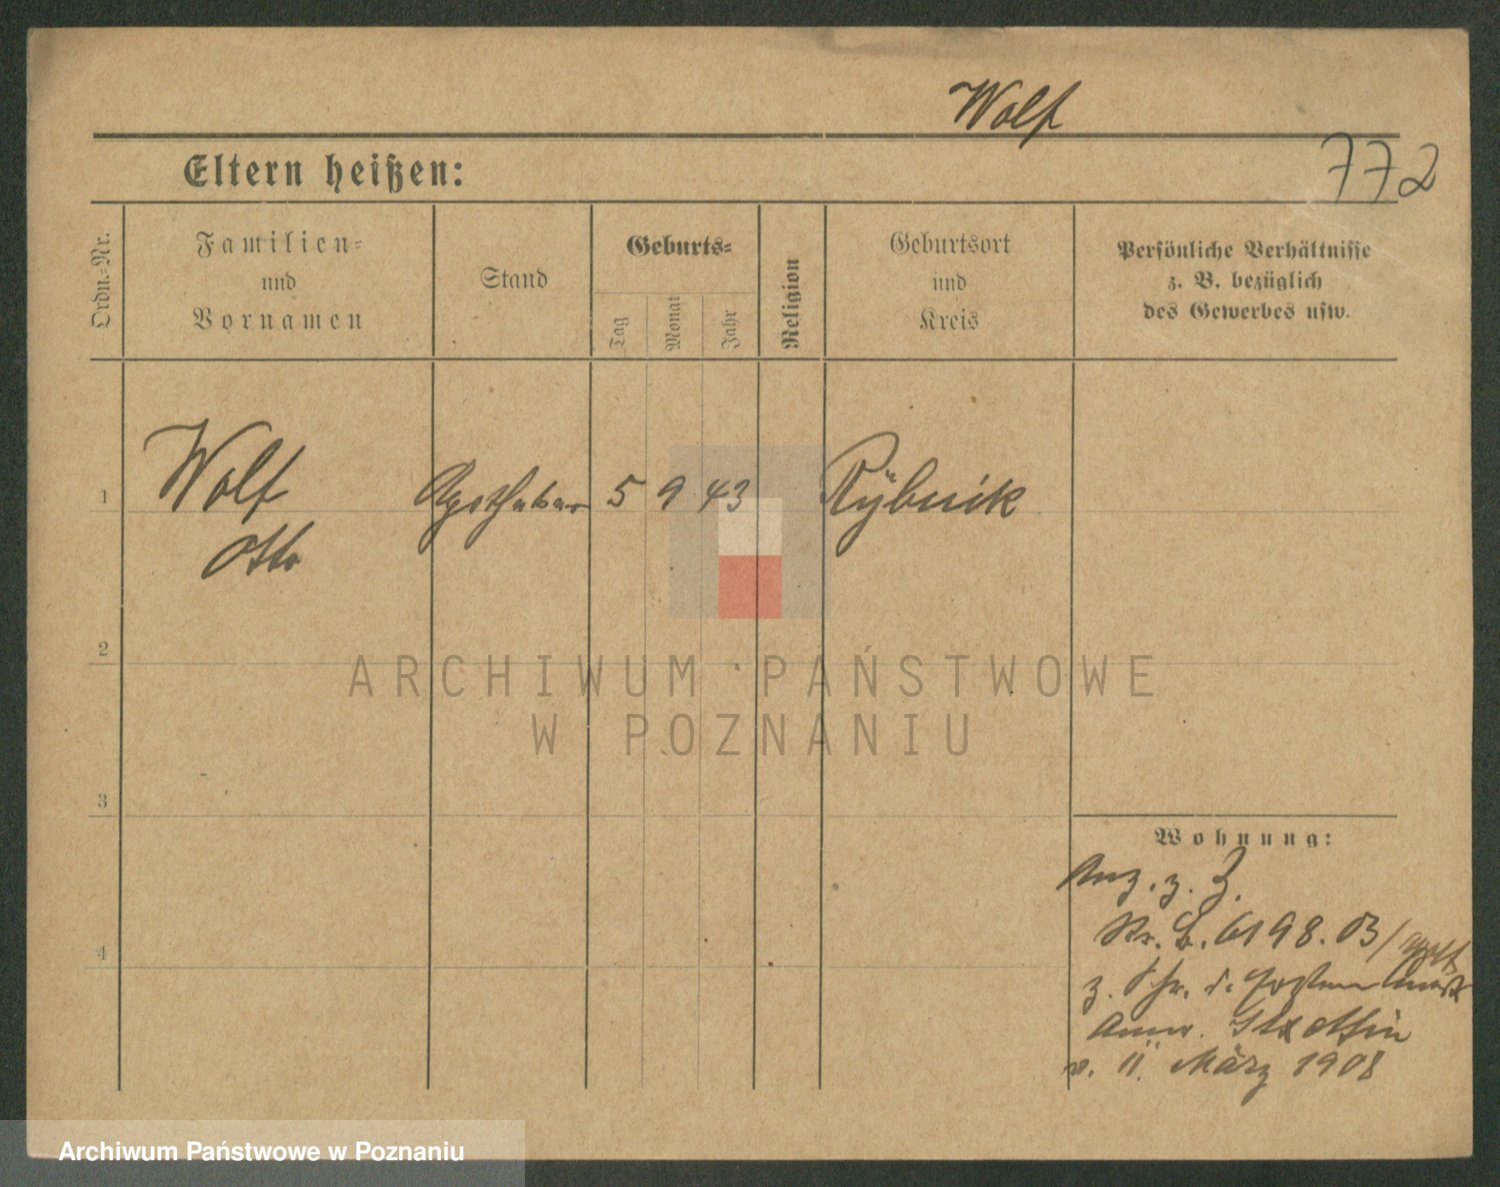 Wolf
772
Eltern heißen:
Ordn.-Nr.
Familien-
und
Vornamen
Stand
Geburts-
Tag
Monat
Jahr
Religion
Geburtsort
und
Kreis
Persönliche Verhältnisse
z. B. bezüglich
des Gewerbes usw.
1
Wolf
Otto
Apotheker
5 9 43
Rybnik
2
ARCHIWUM PAŃSTWOWE
W POZNANIU
3
Wohnung:
Anz. z. Z.
6198.03/
z.
4
v. 11. März 1908
Archiwum Państwowe w Poznaniu